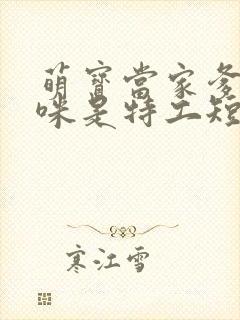 萌寶當家爹
咪是特工短
寒江雪